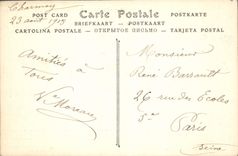 Charmoy
23 août 1909
Carte Postale
POST CARD
POSTKARTE
BRIEFKAART — POSTKAART
CARTOLINA POSTALE — ОТКРЫТОЕ ПИСЬМО — TARJETA POSTAL
Amitiés à
Tous
V. Moreau
Monsieur
René Barrault
26 rue des Ecoles
5e
Paris
Seine